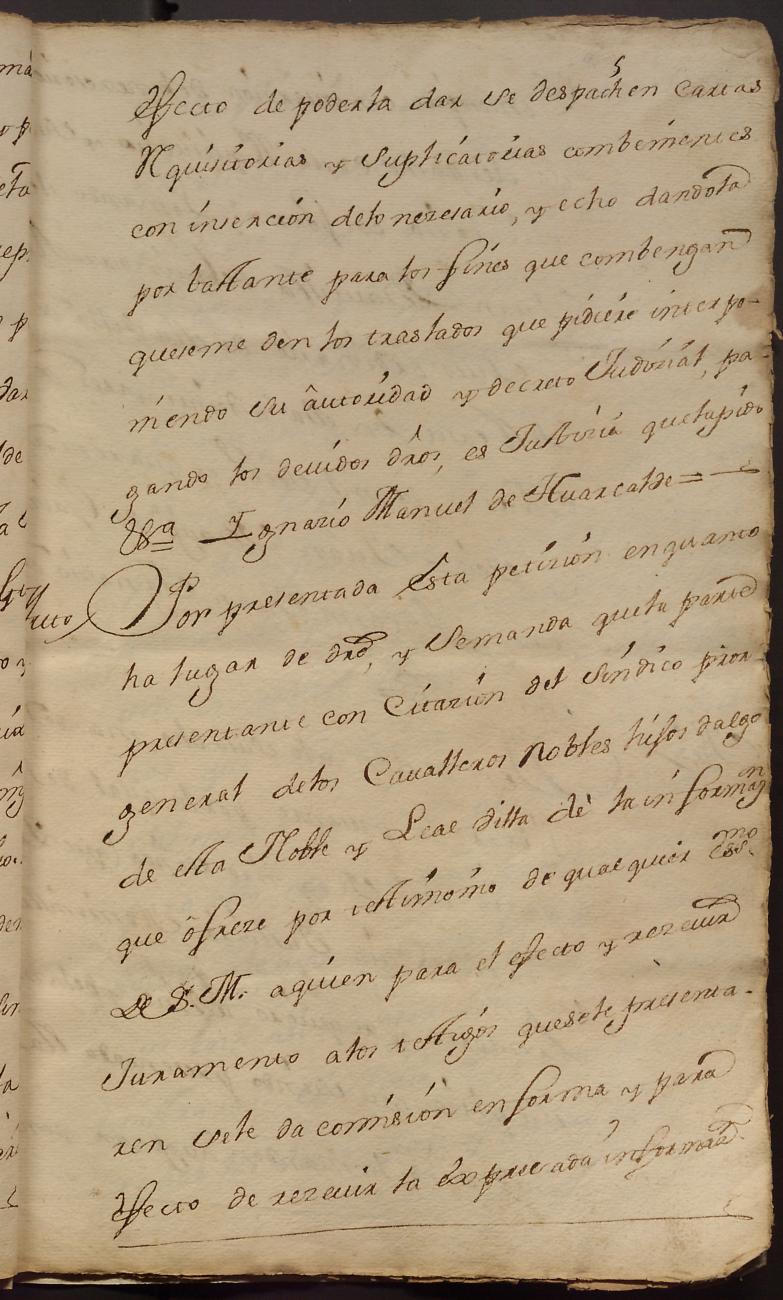 5
efecto de poderla dar se despachen cartas
Rquisitorias y Suplicatorias combenientes
con inserción delo nezesario, y echo dandola
por bastante para los fines que combengan
queseme den los traslados que pidiere interpo-
niendo su autoridad y decreto Judizial, pa-
gando los devidos dros, es Justizia que la pido
&ª Ygnazio Manuel de Huarcalde =
Auto Por presentada Esta petizión en quanto
ha lugar de dro, y Semanda que la parte
presentante con Citazión del Síndico pror
general delos Cavalleros Nobles hijos dalgo
de esta Noble y Leal Villa dè la informazn
que ôfreze por testimonio de qualquier essno
de S. M. aquien para el efecto y rezeuir
Juramento alos testigos quesele presenta-
ren sele da comisión en forma y para
efecto de rezeuir la expresada informazn